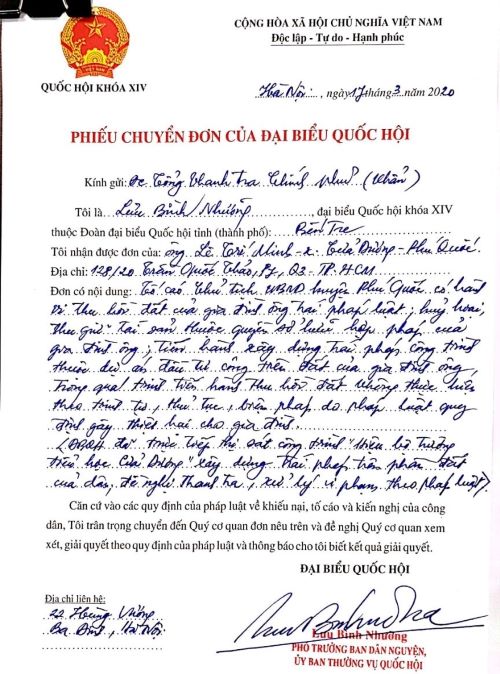 CỘNG HÒA XÃ HỘI CHỦ NGHĨA VIỆT NAM
Độc lập - Tự do - Hạnh phúc
QUỐC HỘI KHÓA XIV
Hà Nội, ngày 17 tháng 3 năm 2020
PHIẾU CHUYỂN ĐƠN CỦA ĐẠI BIỂU QUỐC HỘI
Kính gửi: Tổng thanh tra Chính phủ (khẩn)
Tôi là Lưu Bình Nhưỡng, đại biểu Quốc hội khóa XIV
thuộc Đoàn đại biểu Quốc hội tỉnh (thành phố): Bến Tre
Tôi nhận được đơn của: ông Lê Trí Minh - x. Cửa Dương - Phú Quốc
Địa chỉ: 128/20 Trần Quốc Thảo, Q3 - TP. HCM
Đơn có nội dung: Tố cáo Chủ tịch UBND huyện Phú Quốc có hành
vi thu hồi đất của gia đình ông trái pháp luật; huỷ hoại,
thu giữ tài sản thuộc quyền sở hữu hợp pháp của
gia đình ông; tiến hành xây dựng trái phép công trình
thuộc dự án đầu tư công trên đất của gia đình ông,
trong quá trình tiến hành thu hồi đất không thực hiện
theo trình tự, thủ tục, biện pháp do pháp luật quy
định gây thiệt hại cho gia đình.
(ĐBQH đã trực tiếp thị sát công trình trường
tiểu học Cửa Dương" xây dựng trái phép trên phần đất
của dân, đề nghị thanh tra, xử lý vi phạm theo pháp luật).
Căn cứ vào các quy định của pháp luật về khiếu nại, tố cáo và kiến nghị của công
dân, Tôi trân trọng chuyển đến Quý cơ quan đơn nêu trên và đề nghị Quý cơ quan xem
xét, giải quyết theo quy định của pháp luật và thông báo cho tôi biết kết quả giải quyết.
ĐẠI BIỂU QUỐC HỘI
Địa chỉ liên hệ:
22 Hùng Vương
Ba Đình, Hà Nội
Lưu Bình Nhưỡng
PHÓ TRƯỞNG BAN DÂN NGUYỆN,
ỦY BAN THƯỜNG VỤ QUỐC HỘI